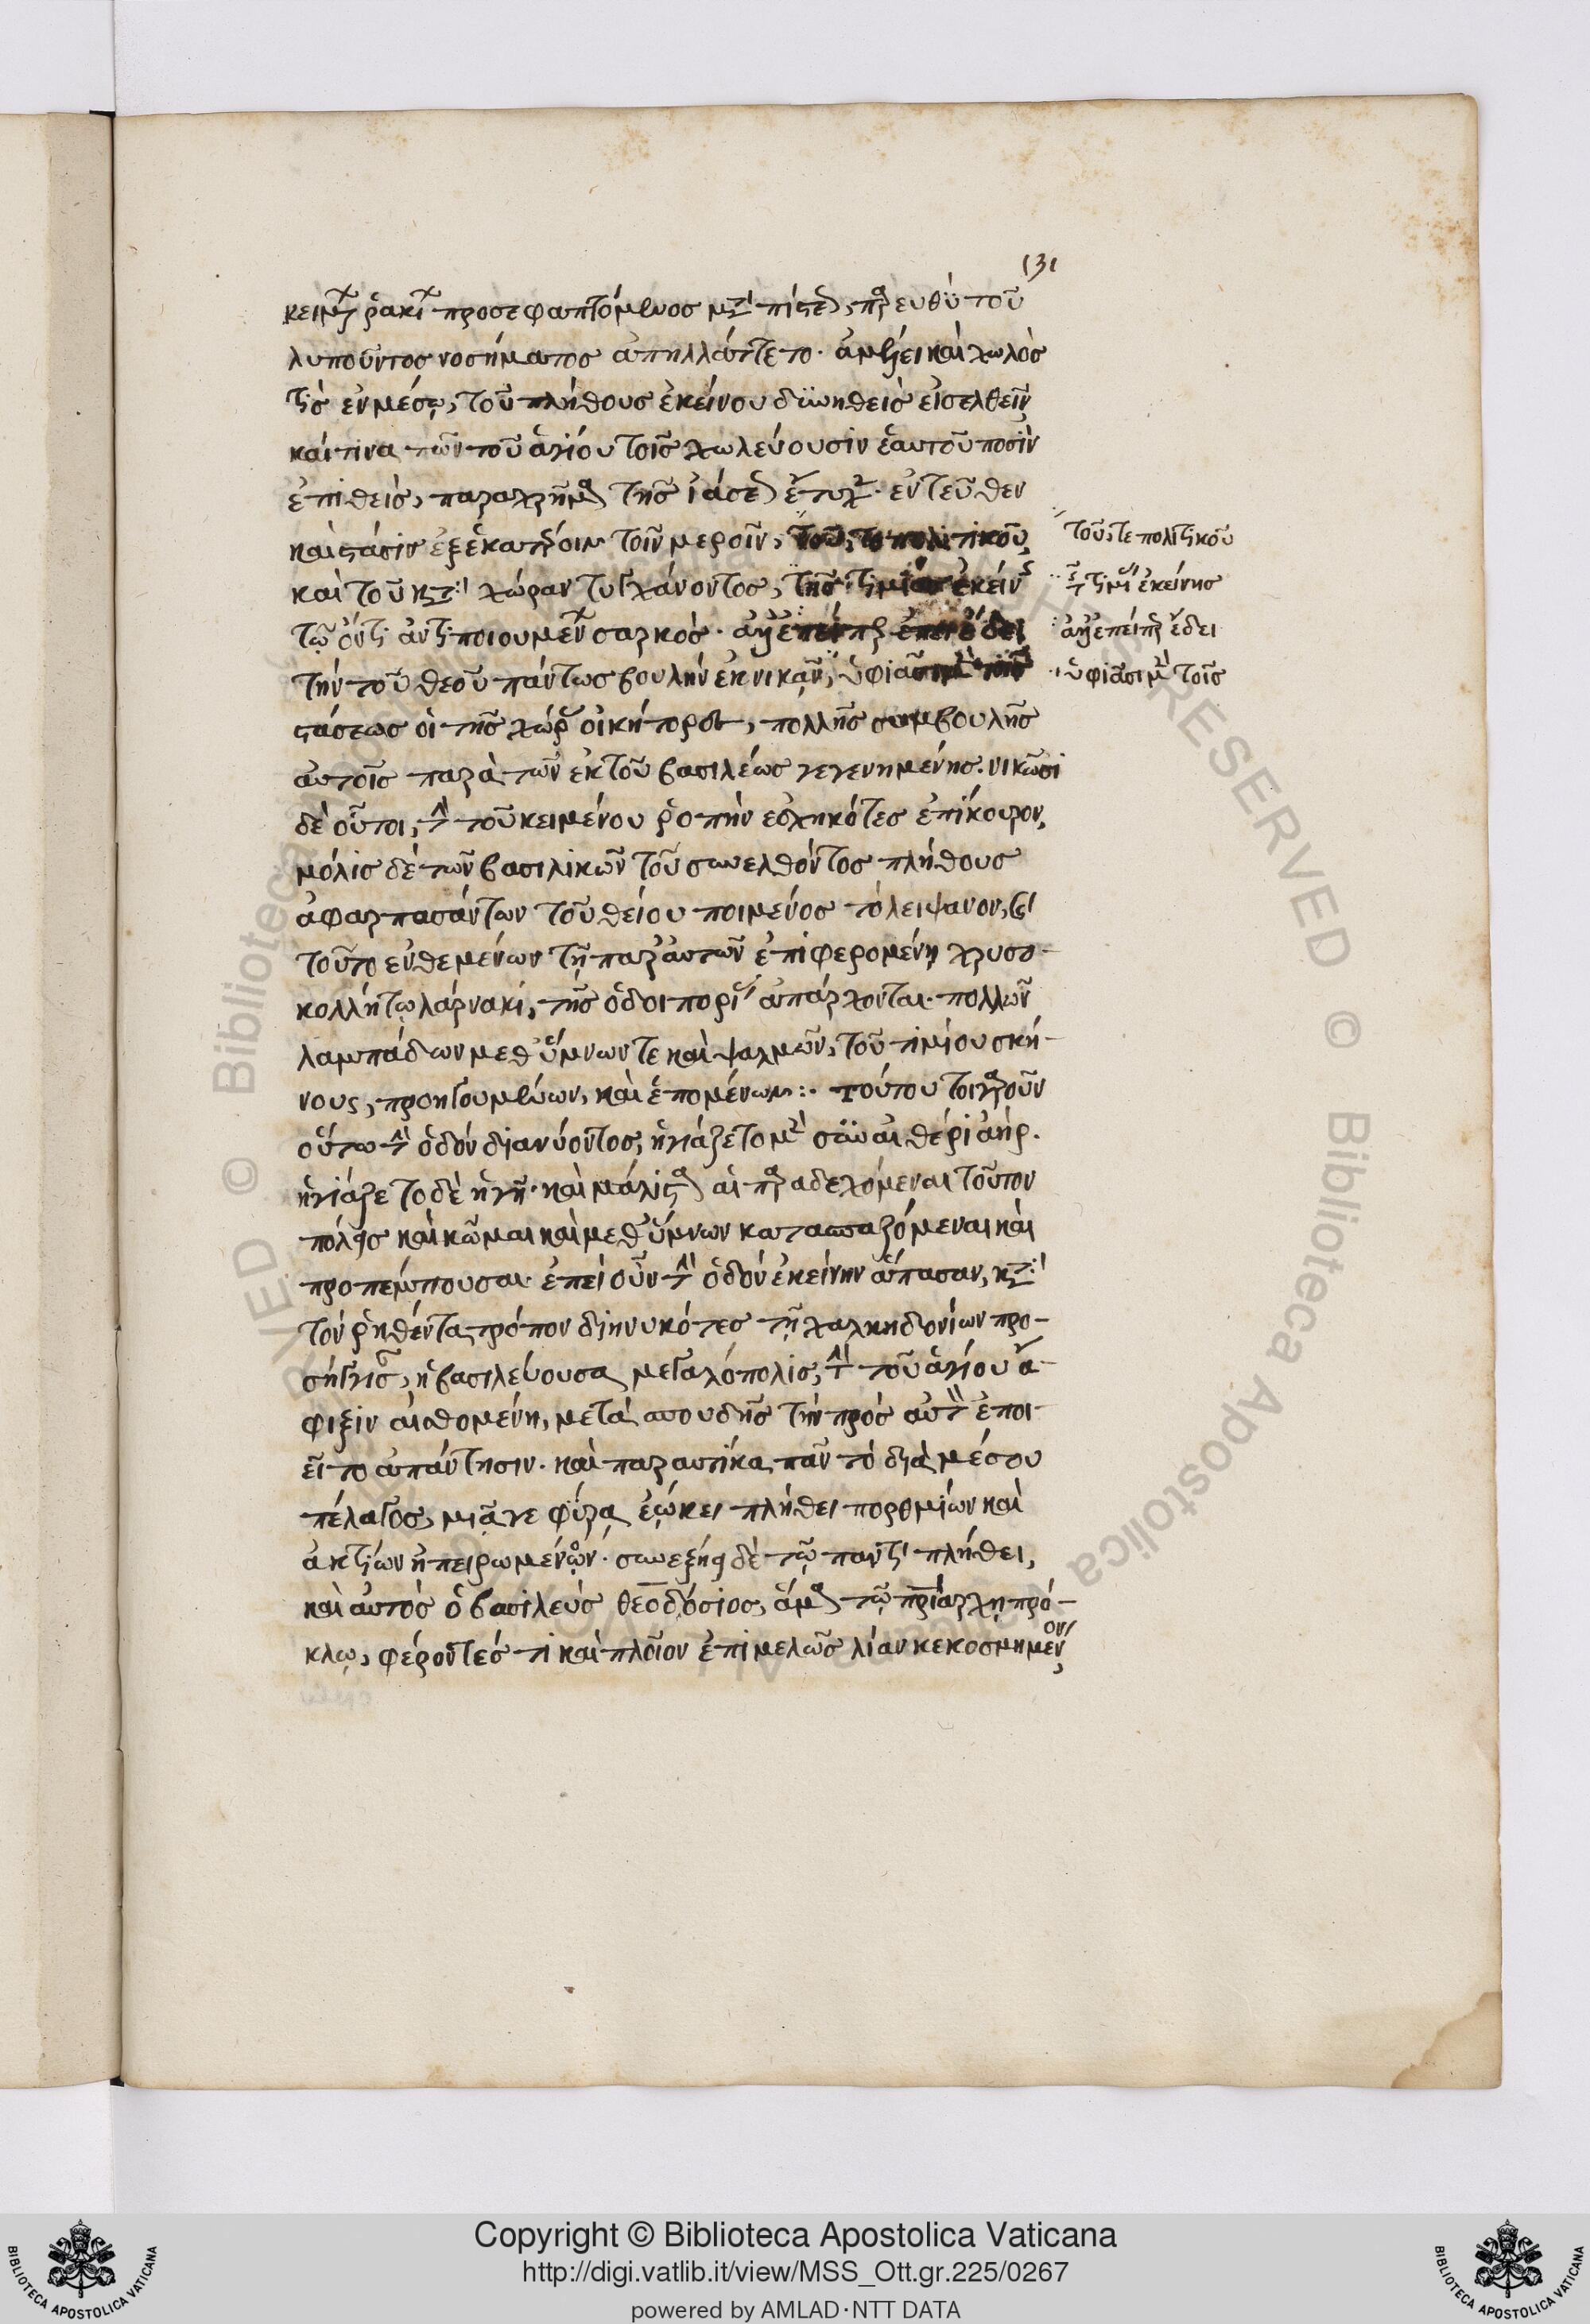 131
κειμένου ῥακίου προσεφαπτόμενος μετὰ πίστεως, παρευθὺ τοῦ
λυποῦντος νοσήματος ἀπηλλάττετο. ἀμέλει καὶ χωλὸς
τὶς ἐν μέσῳ, τοῦ πλήθους ἐκείνου διωηθεὶς εἰσελθεῖν
καί τινα τῶν τοῦ ἁγίου τοῖς χωλεύουσιν ἑαυτοῦ ποσὶν
ἐπιθεὶς, παραχρῆμα τῆς ἰάσεως ἔτυχε. ἐντεῦθεν
καὶ στάσιν ἐξ ἑκατέροιν τοῖν μεροῖν, τοῦ, τε πολιτικοῦ,
καὶ τοῦ κατὰ χώραν τυγχάνοντος, τῆς τιμίας ἐκείνης
τῷ ὄντι ἀντιποιουμένου σαρκός. ἀλλ' ἐπείπερ ἔδει
τὴν τοῦ θεοῦ πάντως βουλὴν ἐκνικᾶν, ὑφιᾶσι μὲν τοῖς
στάσεως οἱ τῆς χώρας οἰκήτορες, πολλῆς συμβουλῆς
αὐτοῖς παρὰ τῶν ἐκ τοῦ βασιλέως γεγενημένης. νικῶσι
δὲ οὗτοι, τὴν τοῦ κειμένου ῥοπὴν ἐσχηκότες ἐπίκουρον,
μόλις δὲ τῶν βασιλικῶν τοῦ συνελθόντος πλήθους
ἀφαρπασάντων τοῦ θείου ποιμένος τὸ λείψανον, καὶ
τοῦτο ἐνθεμένων τῇ παρ' αὐτῶν ἐπιφερομένῃ χρυσο-
κολλήτῳ λάρνακι, τῆς ὁδοιπορίας ἀπάρχονται. πολλῶν
λαμπάδων μεθ' ὕμνων τε καὶ ψαλμῶν, τοῦ τιμίου σκή-
νους, προηγουμένων, καὶ ἑπομένων:. τούτου τοιγαροῦν
οὕτω τὴν ὁδὸν διανύοντος, ἡγιάζετο μὲν σὺν αἰθέρι ἀήρ.
ἡγιάζετο δὲ ἡ γῆ. καὶ μάλιστα αἱ παραδεχόμεναι τοῦτον
πόλεις καὶ κῶμαι καὶ μεθ' ὕμνων κατασπαζόμεναι καὶ
προπέμπουσαι. ἐπεὶ οὖν τὴν ὁδὸν ἐκείνην ἅπασαν, κατὰ
τὸν ῥηθέντα τρόπον διηνυκότες τῇ χαλκηδονίων προ-
σήγγισαν, ἡ βασιλεύουσα μεγαλόπολις, τὴν τοῦ ἁγίου ἄ-
φιξιν αἰσθομένη, μετὰ σπουδῆς τὴν πρὸς αὐτὴν ἐποι-
εῖτο ἀπάντησιν. καὶ παραυτίκα πᾶν τὸ διὰ μέσου
πέλαγος, μιᾷ γε φύρᾳ ἐῴκει πλήθει πορθμίων καὶ
ἀκτίων ἠπειρωμένων. συνεξῄει δὲ τῷ παντὶ πλήθει,
καὶ αὐτὸς ὁ βασιλεὺς θεοδόσιος, ἅμα τῷ πριάρχῃ πρό-
κλῳ, φέροντές τι καὶ πλοῖον ἐπιμελῶς λίαν κεκοσμημένον,
τοῦ, τε πολιτικοῦ
τῆς τιμίας ἐκείνης
ἀλλ' ἐπείπερ ἔδει
ὑφιᾶσι μὲν τοῖς
Copyright © Biblioteca Apostolica Vaticana
http://digi.vatlib.it/view/MSS_Ott.gr.225/0267
powered by AMLAD·NTT DATA